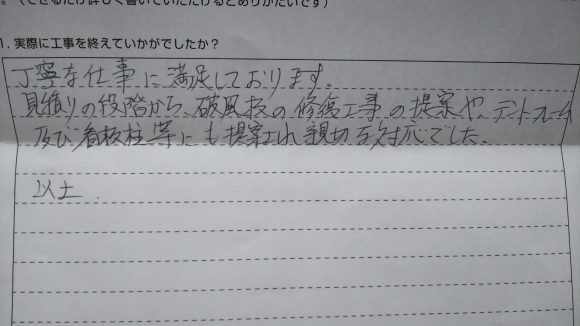 。（できるだけ詳しく書いていただけるとありがたいです）
1. 実際に工事を終えていかがでしたか？
丁寧な仕事に満足しております。
見積りの段階から、破風板の修復工事の提案や、テントフレーム
及び看板柱等にも提案され親切な対応でした。
以上